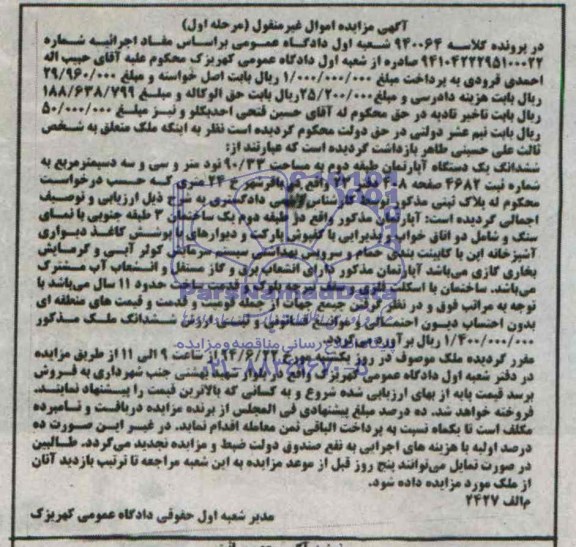 آگهی مزایده اموال غیرمنقول (مرحله اول)
در پرونده کلاسه ۹۴۰۰۶۴ شعبه اول دادگاه عمومی براساس مفاد اجرائیه شماره
۹۴۱۰۴۲۲۲۹۵۱۰۰۰۲۲ صادره از شعبه اول دادگاه عمومی کهریزک محکوم علیه آقای حبیب اله
احمدی فرودی به پرداخت مبلغ ۱/۰۰۰/۰۰۰/۰۰۰ ریال بابت اصل خواسته و مبلغ ۲۹/۹۶۰/۰۰۰
ریال بابت هزینه دادرسی و مبلغ ۲۵/۲۰۰/۰۰۰ریال بابت حق الوکاله و مبلغ ۱۸۸/۶۳۸/۷۹۹
ریال بابت تاخیر تادیه در حق محکوم له آقای حسین فتحی احدبکلو و نیز مبلغ ۵۰/۰۰۰/۰۰۰
ریال بابت نیم عشر دولتی در حق دولت محکوم گردیده است نظر به اینکه ملک متعلق به شخص
ثالث علی حسینی طاهر بازداشت گردیده است که عبارتند از:
ششدانگ یک دستگاه آپارتمان طبقه دوم به مساحت ۹۰/۳۳ نود متر و سی و سه دسیمترمربع به
شماره ثبت ۴۶۸۲ صفحه ۴۰۸ دفتر واقع در باقرشهر خ ۲۴ متری که حسب درخواست
محکوم له پلاک ثبتی مذکور توسط کارشناس رسمی دادگستری به شرح ذیل ارزیابی و توصیف
اجمالی گردیده است: آپارتمان مذکور واقع در طبقه دوم یک ساختمان ۳ طبقه جنوبی با نمای
سنگ و شامل دو اتاق خواب و پذیرایی با کفپوش پارکت و دیوارهای با پوشش کاغذ دیواری
آشپزخانه اپن با کابینت بندی حمام و سرویس بهداشتی سیستم سرمایش کولر آبی و گرمایش
بخاری گازی می‌باشد آپارتمان مذکور دارای انشعاب برق و گاز مستقل و انشعاب آب مشترک
می‌باشد. ساختمان با اسکلت فلزی و سقف تیرچه بلوک و قدمت ساخت حدود ۱۱ سال می‌باشد با
توجه به مراتب فوق و در نظر گرفتن جهات از جمله موقعیت قدمت و قیمت های منطقه ای
بدون احتساب دیون احتمالی و موانع قانونی و ثبتی ارزش ششدانگ ملک مذکور
۱/۴۰۰/۰۰۰/۰۰۰ ریال برآورد می‌گردد.
مقرر گردیده ملک موصوف در روز یکشنبه مورخ ۹۴/۶/۲۲ از ساعت ۹ الی ۱۱ از طریق مزایده
در دفتر شعبه اول دادگاه عمومی کهریزک واقع در بلوار شهید بهشتی جنب شهرداری به فروش
برسد قیمت پایه از بهای ارزیابی شده شروع و به کسانی که بالاترین قیمت را پیشنهاد نمایند.
فروخته خواهد شد. ده درصد مبلغ پیشنهادی فی المجلس از برنده مزایده دریافت و نامبرده
مکلف است تا یکماه نسبت به پرداخت الباقی ثمن معامله اقدام نماید. در غیر این صورت ده
درصد اولیه با هزینه های اجرایی به نفع صندوق دولت ضبط و مزایده تجدید می‌گردد. طالبین
در صورت تمایل می‌توانند پنج روز قبل از موعد مزایده به این شعبه مراجعه تا ترتیب بازدید آنان
از ملک مورد مزایده داده شود.
م‌الف ۲۴۲۷
مدیر شعبه اول حقوقی دادگاه عمومی کهریزک
ParsNamadData
پایگاه اطلاع رسانی مناقصه و مزایده